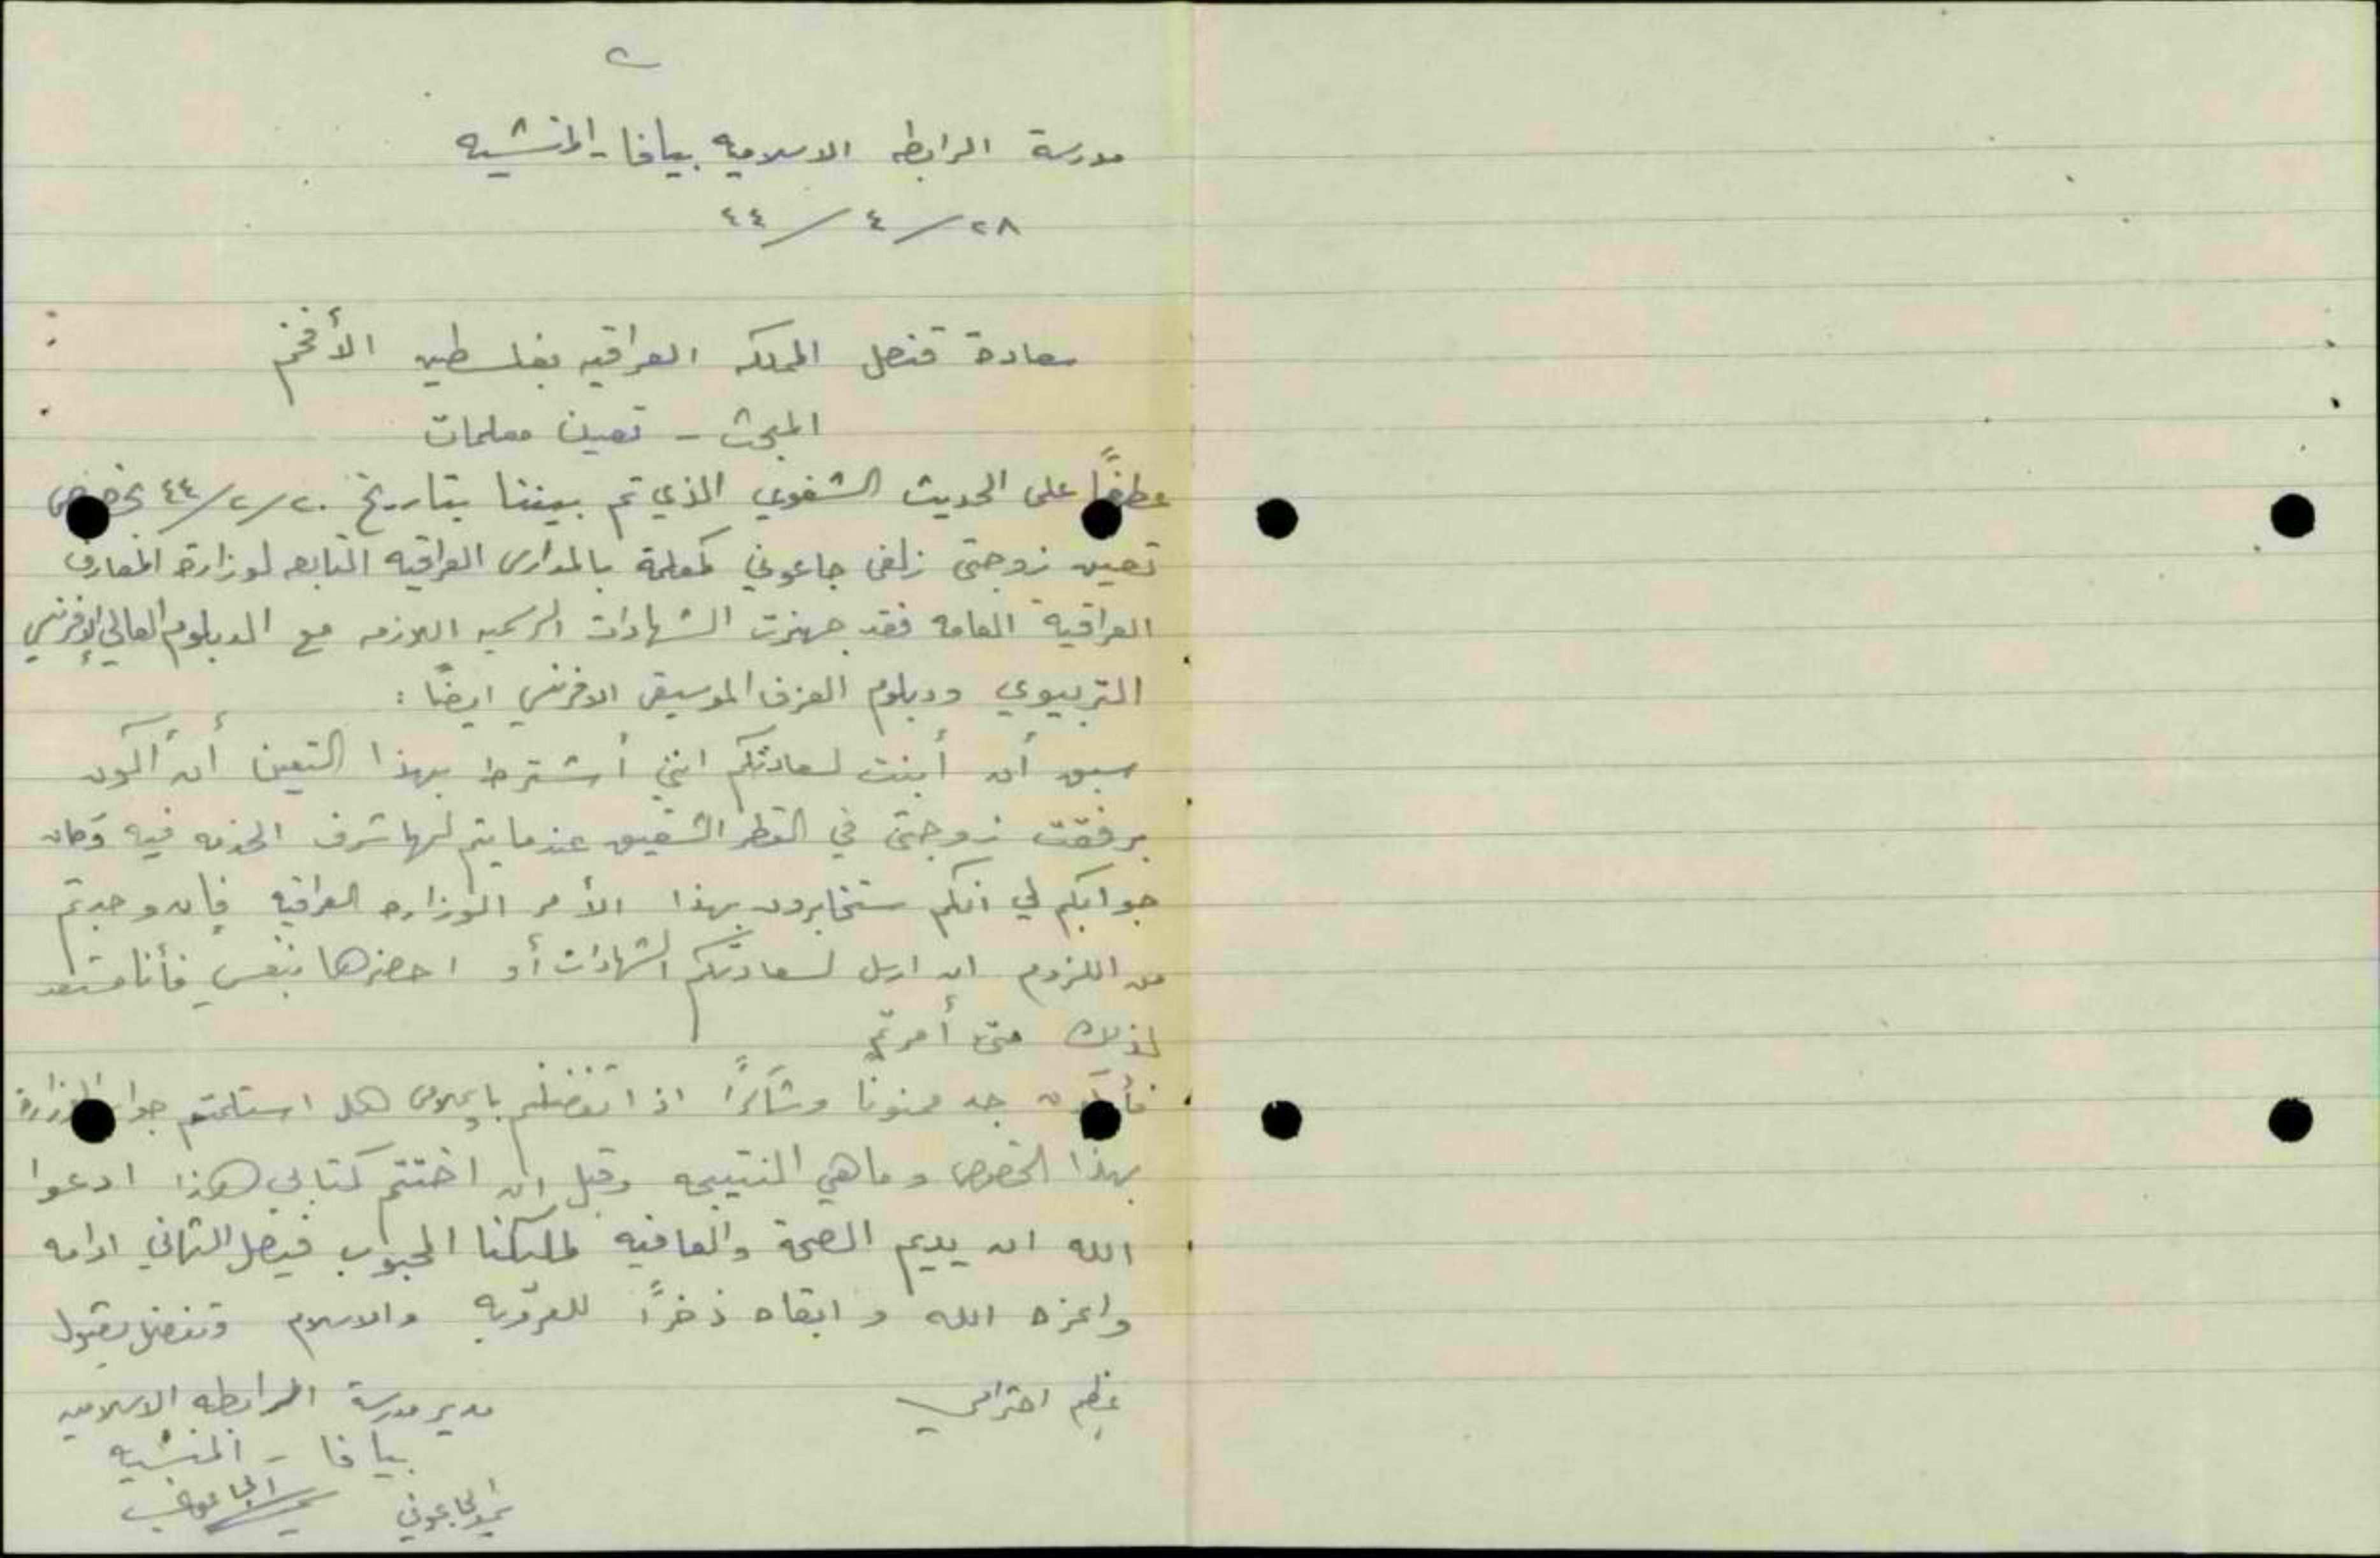 مدرسة الرابطه الاسلاميه بيافا - المنشيه
٢٨/٤/٤٤
سعادة قنصل المملكه العراقيه بفلسطين الأفخم
المبحث - تعين معلمات
عطفًا على الحديث الشفوي الذي تم بيننا بتاريخ ٢٠/٢/٤٤ بخصوص
تعين زوجتي زلفى جاعوني كمعلمة بالمدارس العراقيه التابعه لوزارة المعارف
العراقية العامه فقد جهزت الشهادات الرسميه اللازمه مع الدبلوم العالي الإفرنسي
التربيوي ودبلوم العزف الموسيقي الافرنسي ايضًا :
سبق أن أبنت لسعادتكم انني أشترط بهذا التعين أن أكون
برفقت زوجتي في القطر الشقيق عندما يتم لها شرف الخدمه فيه وكان
جوابكم لي انكم ستخابرون بهذا الأمر الوزاره العراقيه فإن وجدتم
من اللزوم ان ارسل لسعادتكم الشهادات أو احضرها بنفسي فأنا مستعد
لذلك متى أمرتم
فأكون جد ممنونا وشاكرًا اذا تفضلتم بإعلامي هل استلمتم جواب الوزارة
بهذا الخصوص وما هي النتيجه وقبل ان اختتم كتابي هذا ادعوا
الله ان يديم الصحة والعافيه لمليكنا المحبوب فيصل الثاني ادامه
واعزه الله وابقاه ذخرًا للعروبه والاسلام وتفضل بقبول
عظم احترامي
مدير مدرسة الرابطه الاسلاميه
بيافا - المنشيه
الجاعوني الجاعوني